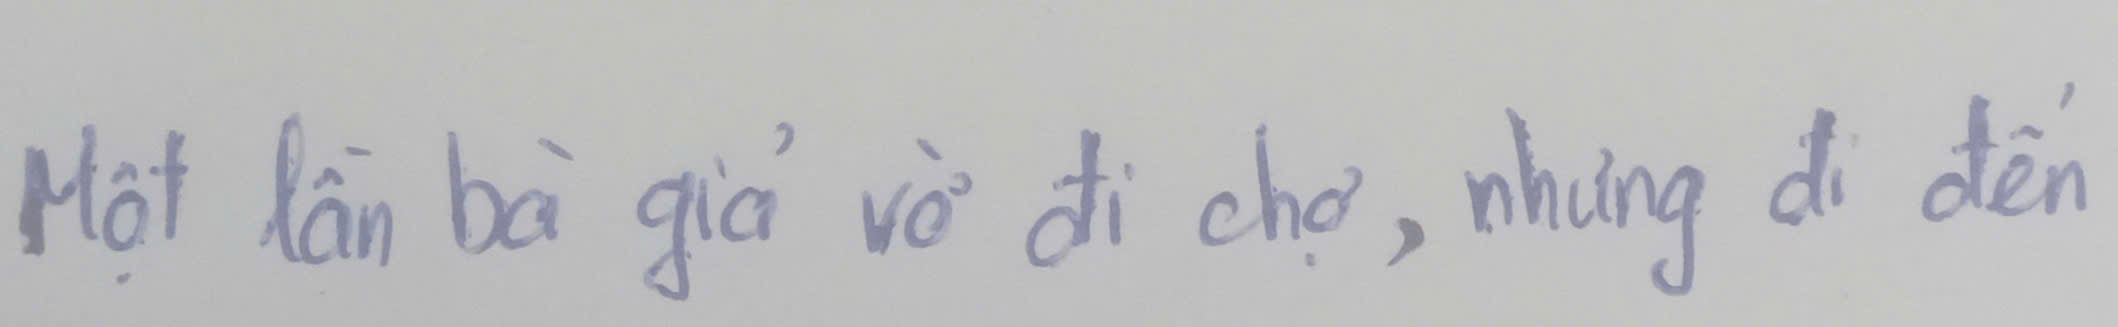 Một lần bà giả vờ đi chợ, nhưng đi đến